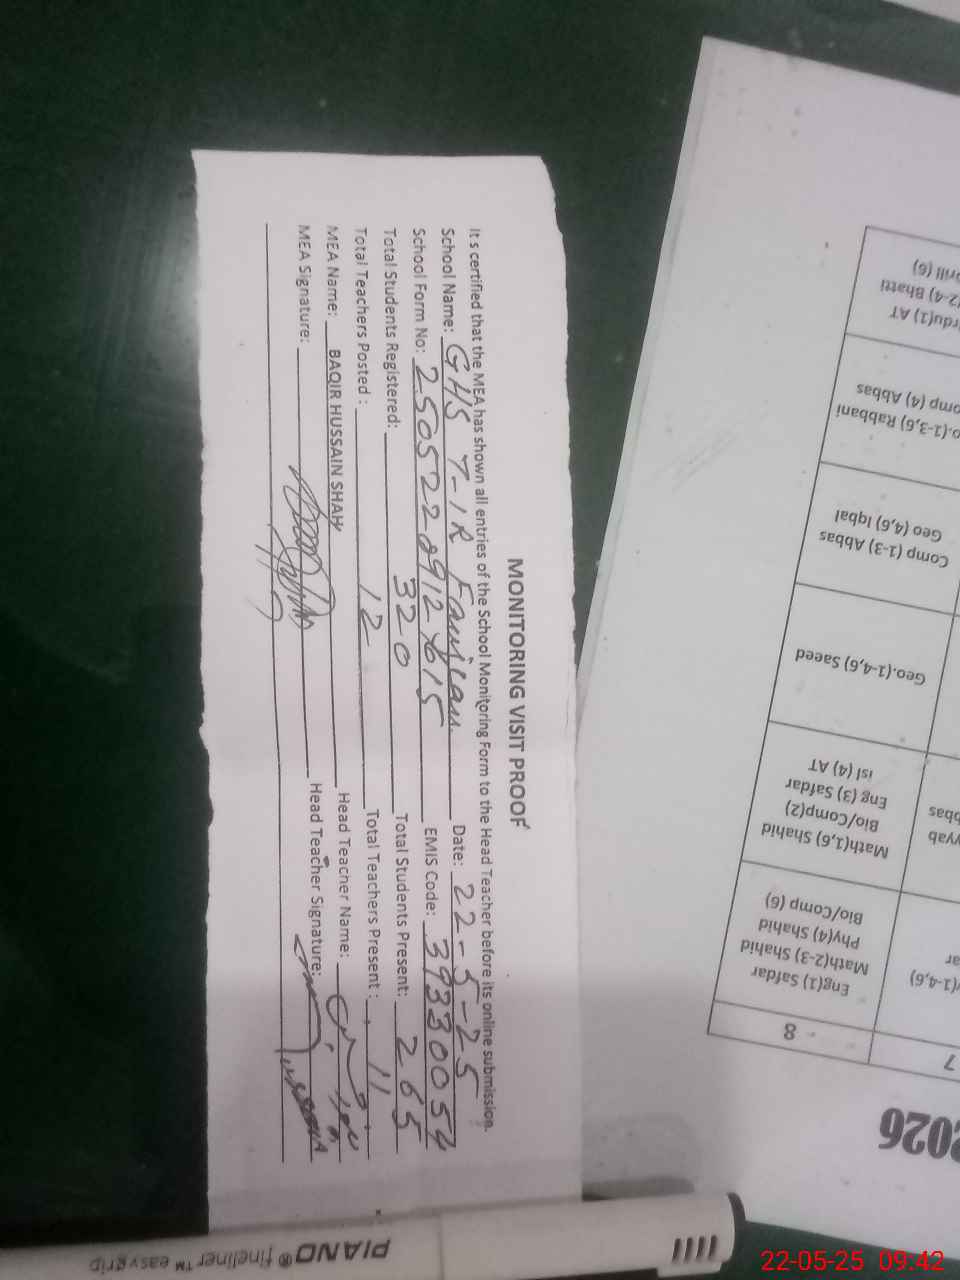 MONITORING VISIT PROOF
It s certified that the MEA has shown all entries of the School Monitoring Form to the Head Teacher before its online submission.
School Name: GHS 7-1R Faujian. Date: 22-5-25
School Form No: EMIS Code: 39330054
Total Students Registered: 320 Total Students Present: 265
Total Teachers Posted : 12 Total Teachers Present : 11
MEA Name: BAQIR HUSSAIN SHAH Head Teacher Name:
MEA Signature: Head Teacher Signature:
2026
7
8
Eng(1) Safdar
Math(2-3) Shahid
Phy(4) Shahid
Bio/Comp (6)
Math(1,6) Shahid
Bio/Comp(2)
Eng (3) Safdar
isl (4) AT
Geo.(1-4,6) Saeed
Comp (1-3) Abbas
Geo (4,6) Iqbal
(1-3,6) Rabbani
(4) Abbas
(1) AT
(2-4) Bhatti
(6)
(1-4,6)
PIANO® fineliner™ easygrip
22-05-25 09:42